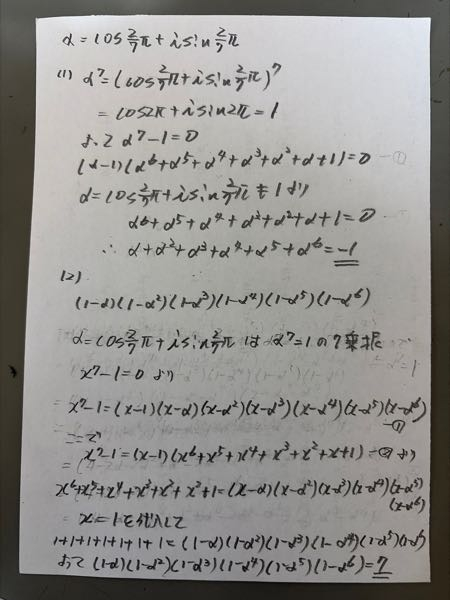 α = cos 2/7 π + i sin 2/7 π
(1) α⁷ = (cos 2/7 π + i sin 2/7 π)⁷
= cos2π + i sin2π = 1
よって α⁷ - 1 = 0
(α-1)(α⁶+α⁵+α⁴+α³+α²+α+1) = 0 -①
α = cos 2/7 π + i sin 2/7 π ≠ 1 より
α⁶+α⁵+α⁴+α³+α²+α+1 = 0
∴ α+α²+α³+α⁴+α⁵+α⁶ = -1
(2)
(1-α)(1-α²)(1-α³)(1-α⁴)(1-α⁵)(1-α⁶)
α = cos 2/7 π + i sin 2/7 π は α⁷=1 の7乗根
x⁷-1=0 より
x⁷-1 = (x-1)(x-α)(x-α²)(x-α³)(x-α⁴)(x-α⁵)(x-α⁶) -①
ここで
x⁷-1 = (x-1)(x⁶+x⁵+x⁴+x³+x²+x+1) -② より
x⁶+x⁵+x⁴+x³+x²+x²+1 = (x-α)(x-α²)(x-α³)(x-α⁴)(x-α⁵)
(x-α⁶)
x = 1 を代入して
1+1+1+1+1+1+1 = (1-α)(1-α²)(1-α³)(1-α⁴)(1-α⁵)(1-α⁶)
よって (1-α)(1-α²)(1-α³)(1-α⁴)(1-α⁵)(1-α⁶) = 7